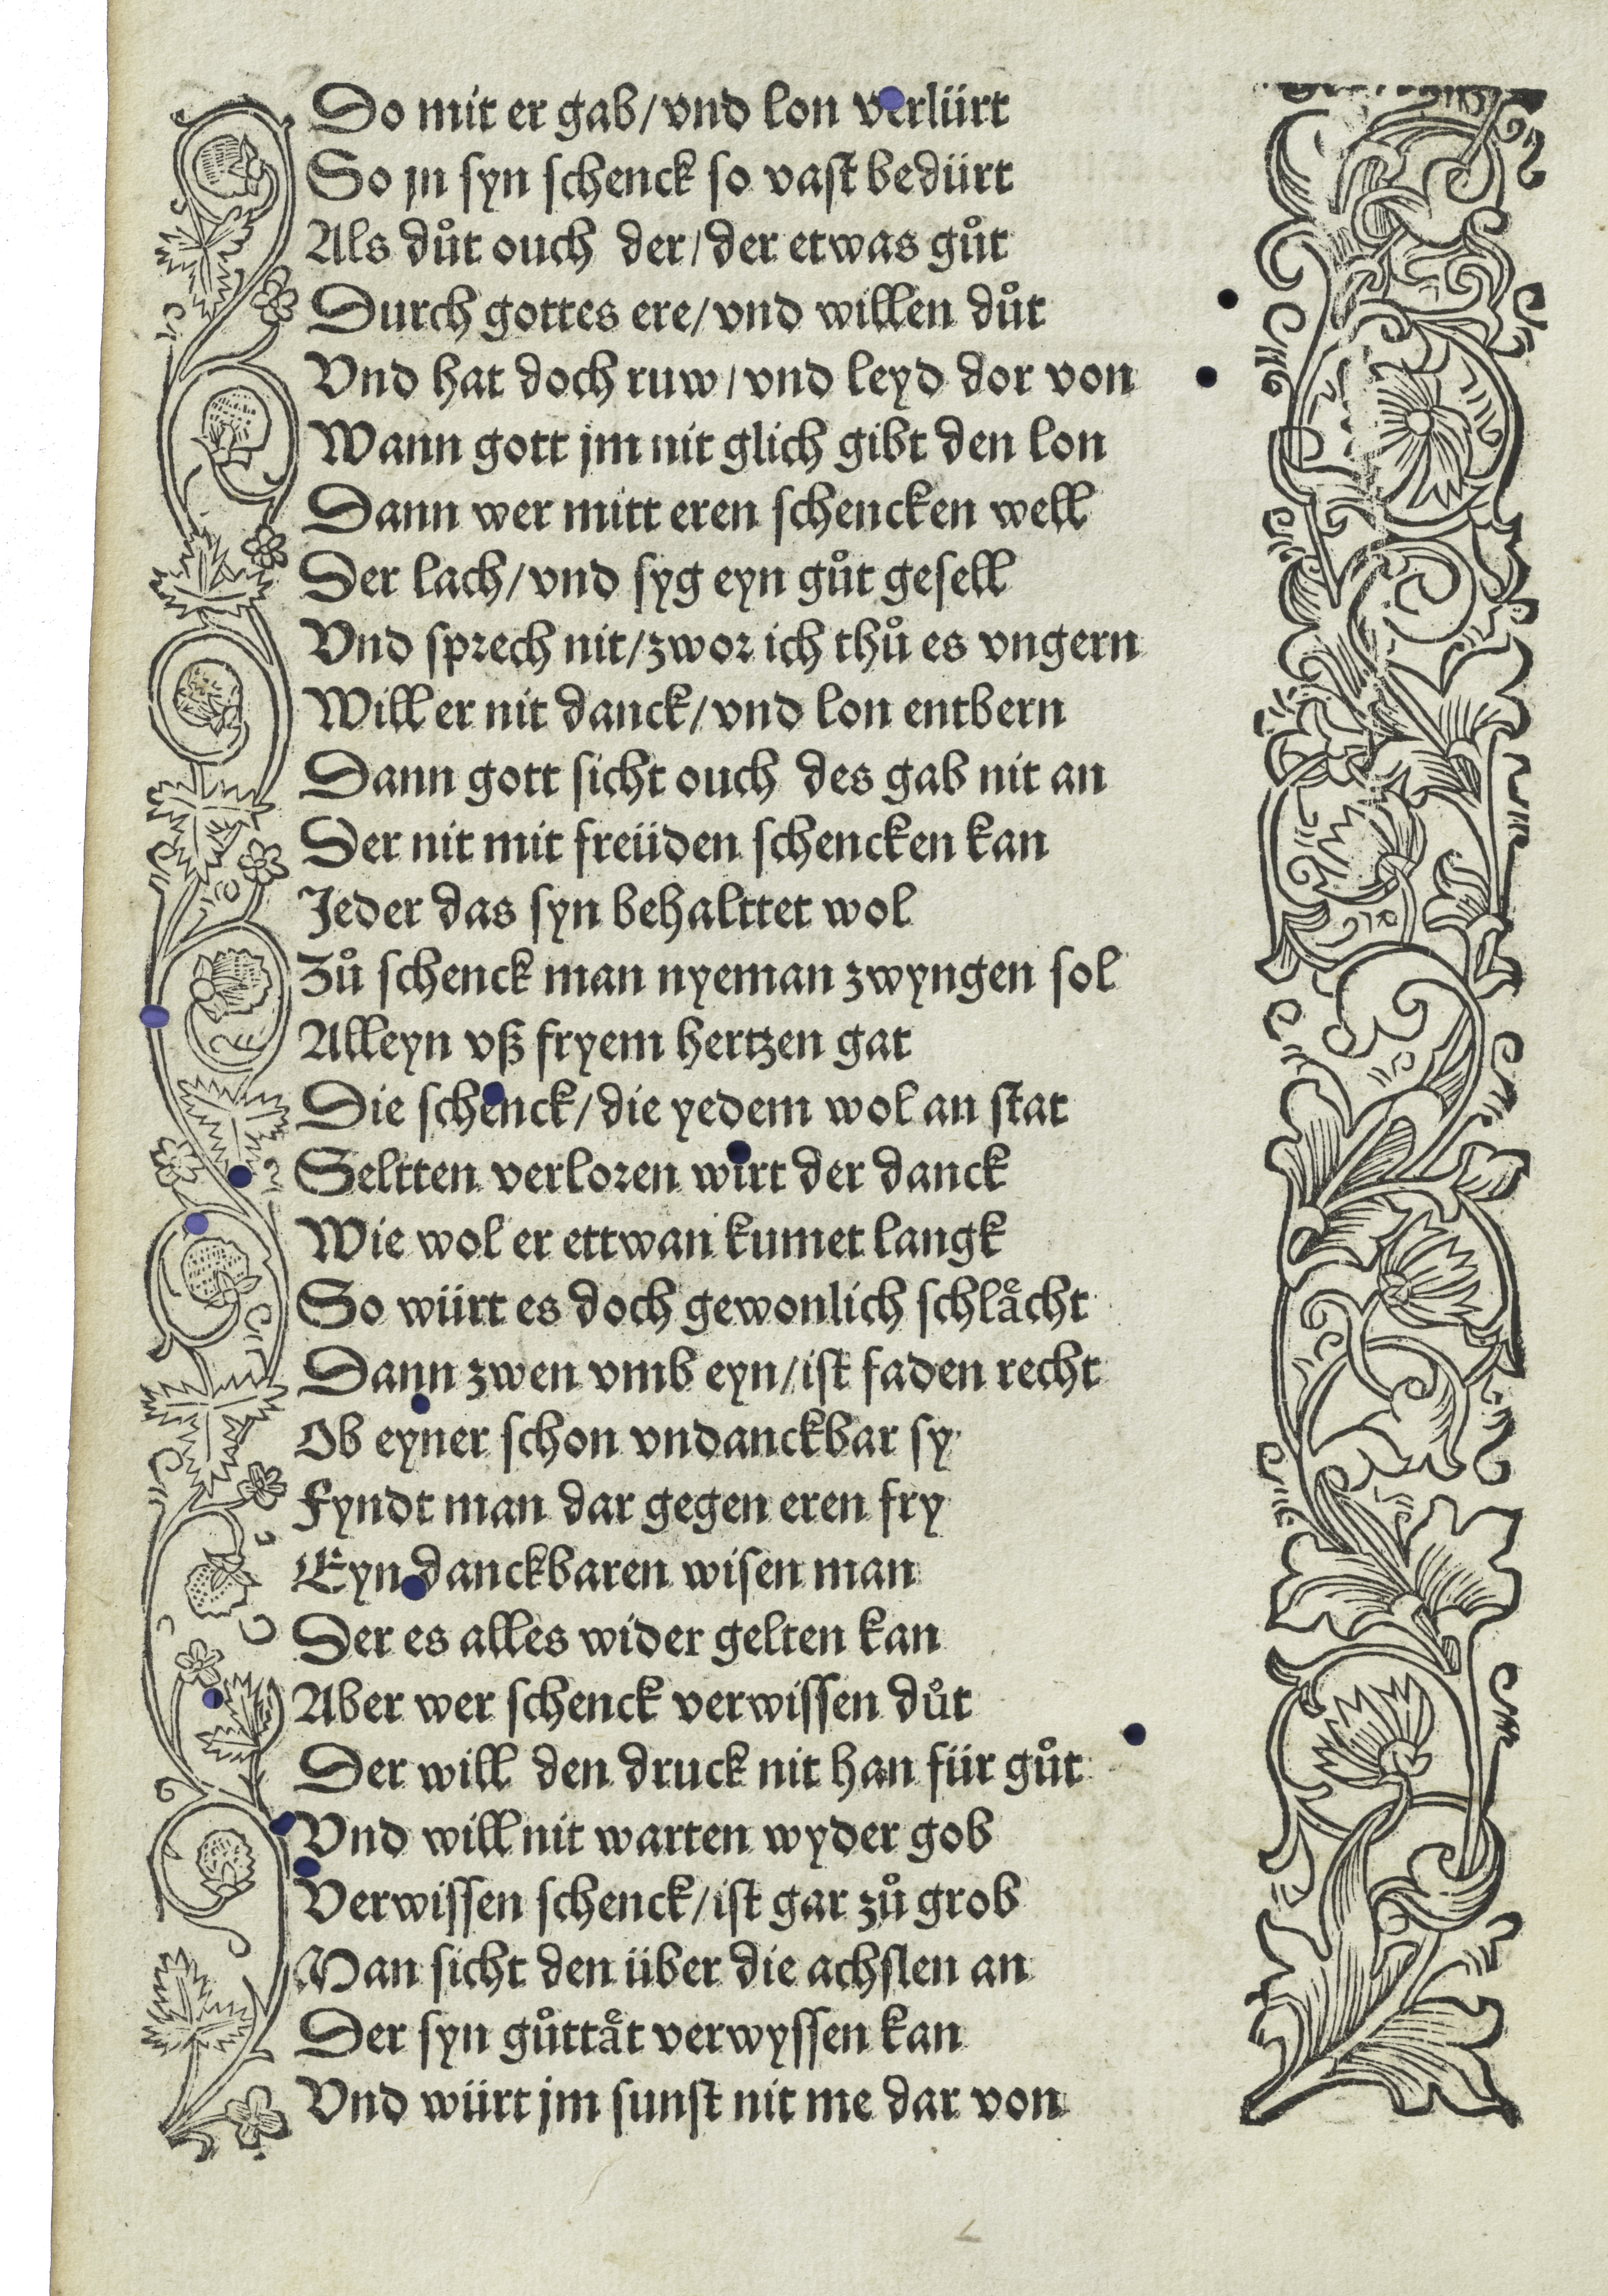 Do mit er gab/vnd lon verlürt
So jn syn schenck so vast bedürt
Als důt ouch der/der etwas gůt
Durch gottes ere/vnd willen důt
Vnd hat doch ruw/vnd leyd dor von
Wann gott jm nit glich gibt den lon
Dann wer mitt eren schencken well
Der lach/vnd syg eyn gůt gesell
Vnd sprech nit/zwor ich thů es vngern
Will er nit danck/vnd lon entbern
Dann gott sicht ouch des gab nit an
Der nit mit freüden schencken kan
Jeder das syn behalttet wol
Zů schenck man nyeman zwyngen sol
Alleyn vß fryem hertzen gat
Die schenck/die yedem wol an stat
Seltten verloren wirt der danck
Wie wol er ettwan kumet langk
So würt es doch gewonlich schlaͤcht
Dann zwen vmb eyn/ist faden recht
Ob eyner schon vndanckbar sy
Fyndt man dar gegen eren fry
Eyn danckbaren wisen man
Der es alles wider gelten kan
Aber wer schenck verwissen důt
Der will den druck nit han für gůt
Vnd will nit warten wyder gob
Verwissen schenck/ist gar zů grob
Man sicht den über die achslen an
Der syn gůttaͤt verwyssen kan
Vnd würt jm sunst nit me dar von